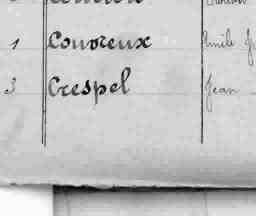 1 Couvreux Emile
3 Crespel Jean